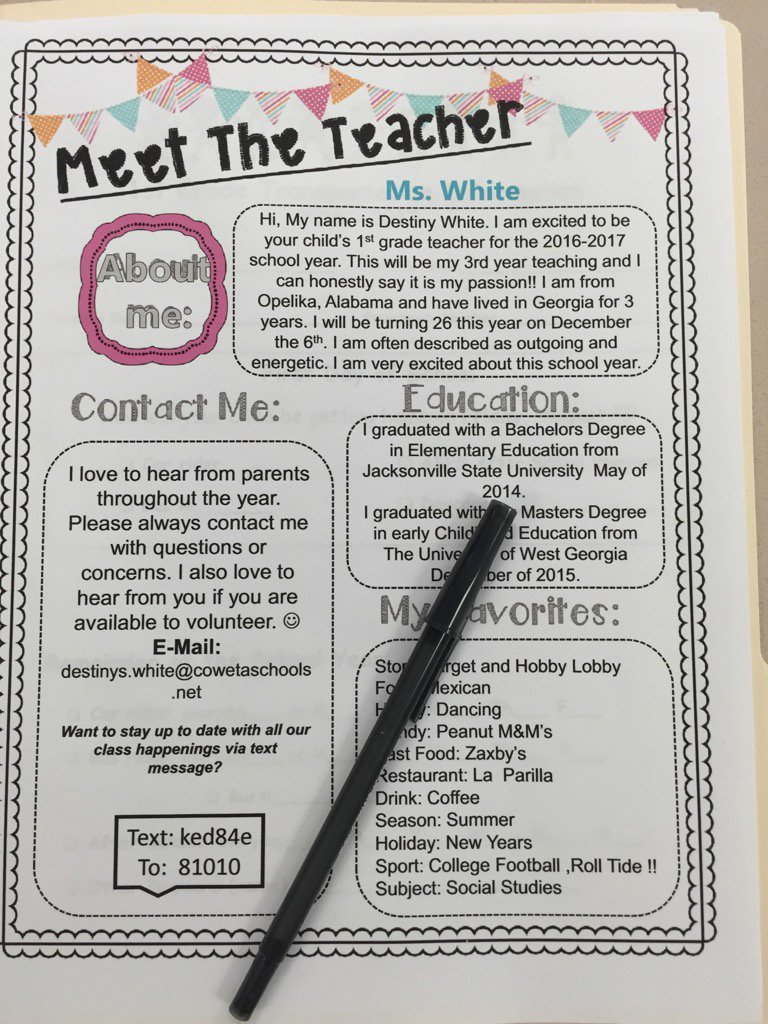 Meet The Teacher
Ms. White
About
me:
Hi, My name is Destiny White. I am excited to be
your child's 1st grade teacher for the 2016-2017
school year. This will be my 3rd year teaching and I
can honestly say it is my passion!! I am from
Opelika, Alabama and have lived in Georgia for 3
years. I will be turning 26 this year on December
the 6th. I am often described as outgoing and
energetic. I am very excited about this school year.
Contact Me:
I love to hear from parents
throughout the year.
Please always contact me
with questions or
concerns. I also love to
hear from you if you are
available to volunteer. ☺
E-Mail:
destinys.white@cowetaschools
.net
Want to stay up to date with all our
class happenings via text
message?
Text: ked84e
To: 81010
Education:
I graduated with a Bachelors Degree
in Elementary Education from
Jacksonville State University May of
2014.
I graduated with Masters Degree
in early Education from
The of West Georgia
of 2015.
My Favorites:
and Hobby Lobby
Mexican
Dancing
Peanut M&M's
Fast Food: Zaxby's
Restaurant: La Parilla
Drink: Coffee
Season: Summer
Holiday: New Years
Sport: College Football ,Roll Tide !!
Subject: Social Studies